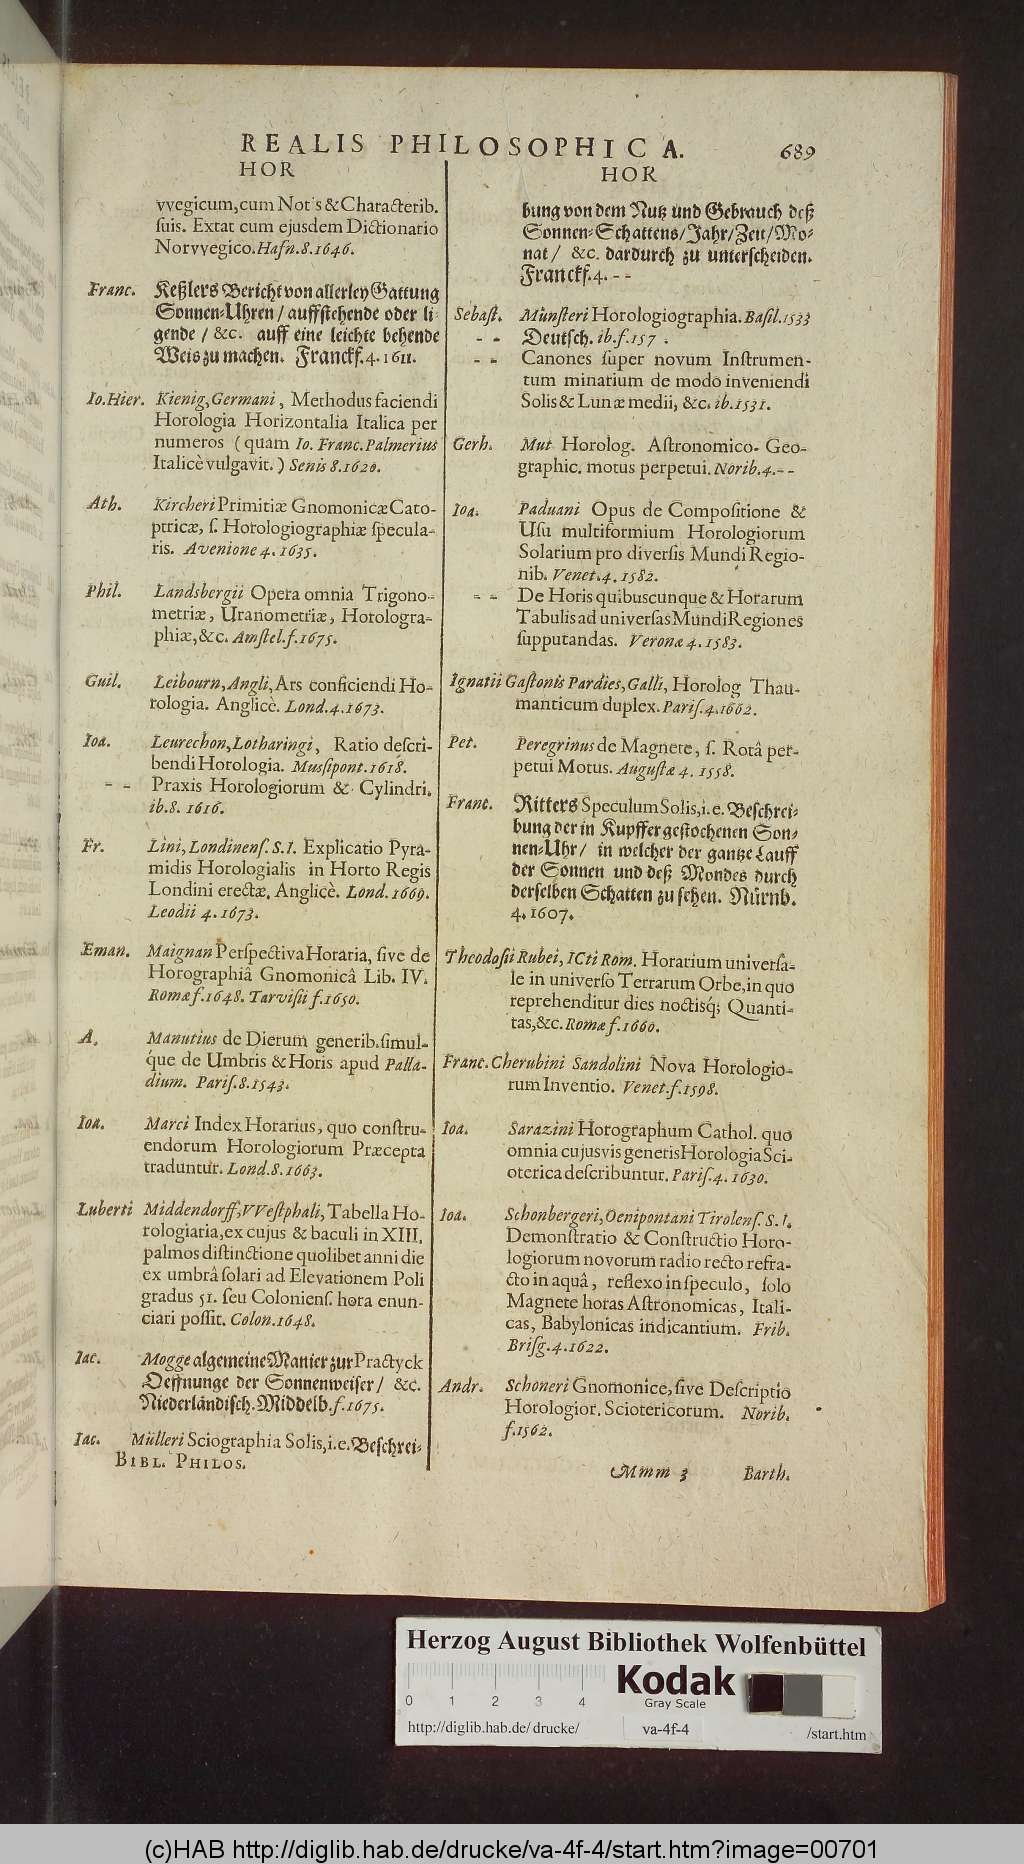 REALIS PHILOSOPHICA. 689
HOR
vvegicum, cum Not's & Characterib.
ſuis. Extat cum ejusdem Dictionatio
Norvvegico. Hafn. 8. 1646.
Franc. Keßlers Bericht von allerley Gattung
Sonnen-Uhren / auffſtehende oder li
gende / &c. auff eine leichte behende
Weis zu machen. Franckf. 4. 1611.
Io. Hier. Kienig, Germani, Methodus faciendi
Horologia Horizontalia Italica per
numeros (quam Io. Franc. Palmerius
Italicè vulgavit.) Senis 8. 1620.
Ath. Kircheri Primitiæ Gnomonicæ Cato-
ptricæ, ſ. Horologiographiæ ſpecula-
ris. Avenione 4. 1635.
Phil. Landsbergii Opera omnia Trigono-
metriæ, Uranometriæ, Horologra-
phiæ, &c. Amſtel. f. 1675.
Guil. Leibourn, Angli, Ars conficiendi Ho-
rologia. Anglicè. Lond. 4. 1673.
Ioa. Leurechon, Lotharingi, Ratio deſcri-
bendi Horologia. Muſſipont. 1618.
- - Praxis Horologiorum & Cylindri.
ib. 8. 1616.
Fr. Lini, Londinenſ. S. I. Explicatio Pyra-
midis Horologialis in Horto Regis
Londini erectæ. Anglicè. Lond. 1669.
Leodii 4. 1673.
Eman. Maignan Perſpectiva Horaria, ſive de
Horographiâ Gnomonicâ Lib. IV.
Romæ f. 1648. Tarviſii f. 1650.
A. Manutius de Dierum generib. ſimul-
que de Umbris & Horis apud Palla-
dium. Pariſ. 8. 1543.
Ioa. Marci Index Horarius, quo conſtru-
endorum Horologiorum Præcepta
traduntur. Lond. 8. 1663.
Luberti Middendorff, VVeſtphali, Tabella Ho-
rologiaria, ex cujus & baculi in XIII.
palmos diſtinctione quolibet anni die
ex umbrâ ſolari ad Elevationem Poli
gradus 51. ſeu Colonienſ. hora enun-
ciari poſſit. Colon. 1648.
Iac. Mogge algemeine Manier zur Practyck
Oeffnunge der Sonnenweiſer / &c.
Niederländiſch. Middelb. f. 1675.
Iac. Mülleri Sciographia Solis, i.e. Beſchrei-
BIBL. PHILOS.
HOR
bung von dem Nutz und Gebrauch deß
Sonnen-Schattens / Jahr / Zeit / Mo-
nat / &c. dardurch zu unterſcheiden.
Franckf. 4. - -
Sebaſt. Münſteri Horologiographia. Baſil. 1533
- - Deutſch. ib. f. 157 .
- - Canones ſuper novum Inſtrumen-
tum minatium de modo inveniendi
Solis & Lunæ medii, &c. ib. 1531.
Gerh. Mut Horolog. Aſtronomico-Geo-
graphic. motus perpetui. Norib. 4. - -
Ioa. Paduani Opus de Compoſitione &
Uſu multiformium Horologiorum
Solarium pro diverſis Mundi Regio-
nib. Venet. 4. 1582.
- - De Horis quibuscunque & Horarum
Tabulis ad univerſas Mundi Regiones
ſupputandas. Veronæ 4. 1583.
Ignatii Gaſtonis Pardies, Galli, Horolog Thau-
manticum duplex. Pariſ. 4. 1662.
Pet. Peregrinus de Magnete, ſ. Rotâ per-
petui Motus. Auguſtæ 4. 1558.
Franc. Ritters Speculum Solis, i.e. Beſchrei-
bung der in Kupffer geſtochenen Son-
nen-Uhr / in welcher der gantze Lauff
der Sonnen und deß Mondes durch
derſelben Schatten zu ſehen. Nürnb.
4. 1607.
Theodoſii Rubei, ICti Rom. Horarium univerſa-
le in univerſo Terrarum Orbe, in quo
reprehenditur dies noctisq; Quanti-
tas, &c. Romæ f. 1660.
Franc. Cherubini Sandolini Nova Horologio-
rum Inventio. Venet. f. 1598.
Ioa. Sarazini Horographum Cathol. quo
omnia cujusvis generis Horologia Sci-
oterica deſcribuntur. Pariſ. 4. 1630.
Ioa. Schonbergeri, Oenipontani Tirolenſ. S. I.
Demonſtratio & Conſtructio Horo-
logiorum novorum radio recto refra-
cto in aquâ, reflexo in ſpeculo, ſolo
Magnete horas Aſtronomicas, Itali-
cas, Babylonicas indicantium. Frib.
Briſg. 4. 1622.
Andr. Schoneri Gnomonice, ſive Deſcriptio
Horologior. Sciotericorum. Norib.
f. 1562.
Mmm 3 Barth.
Herzog August Bibliothek Wolfenbüttel
Kodak
Gray Scale
0 1 2 3 4
http://diglib.hab.de/drucke/ va-4f-4 /start.htm
(c)HAB http://diglib.hab.de/drucke/va-4f-4/start.htm?image=00701